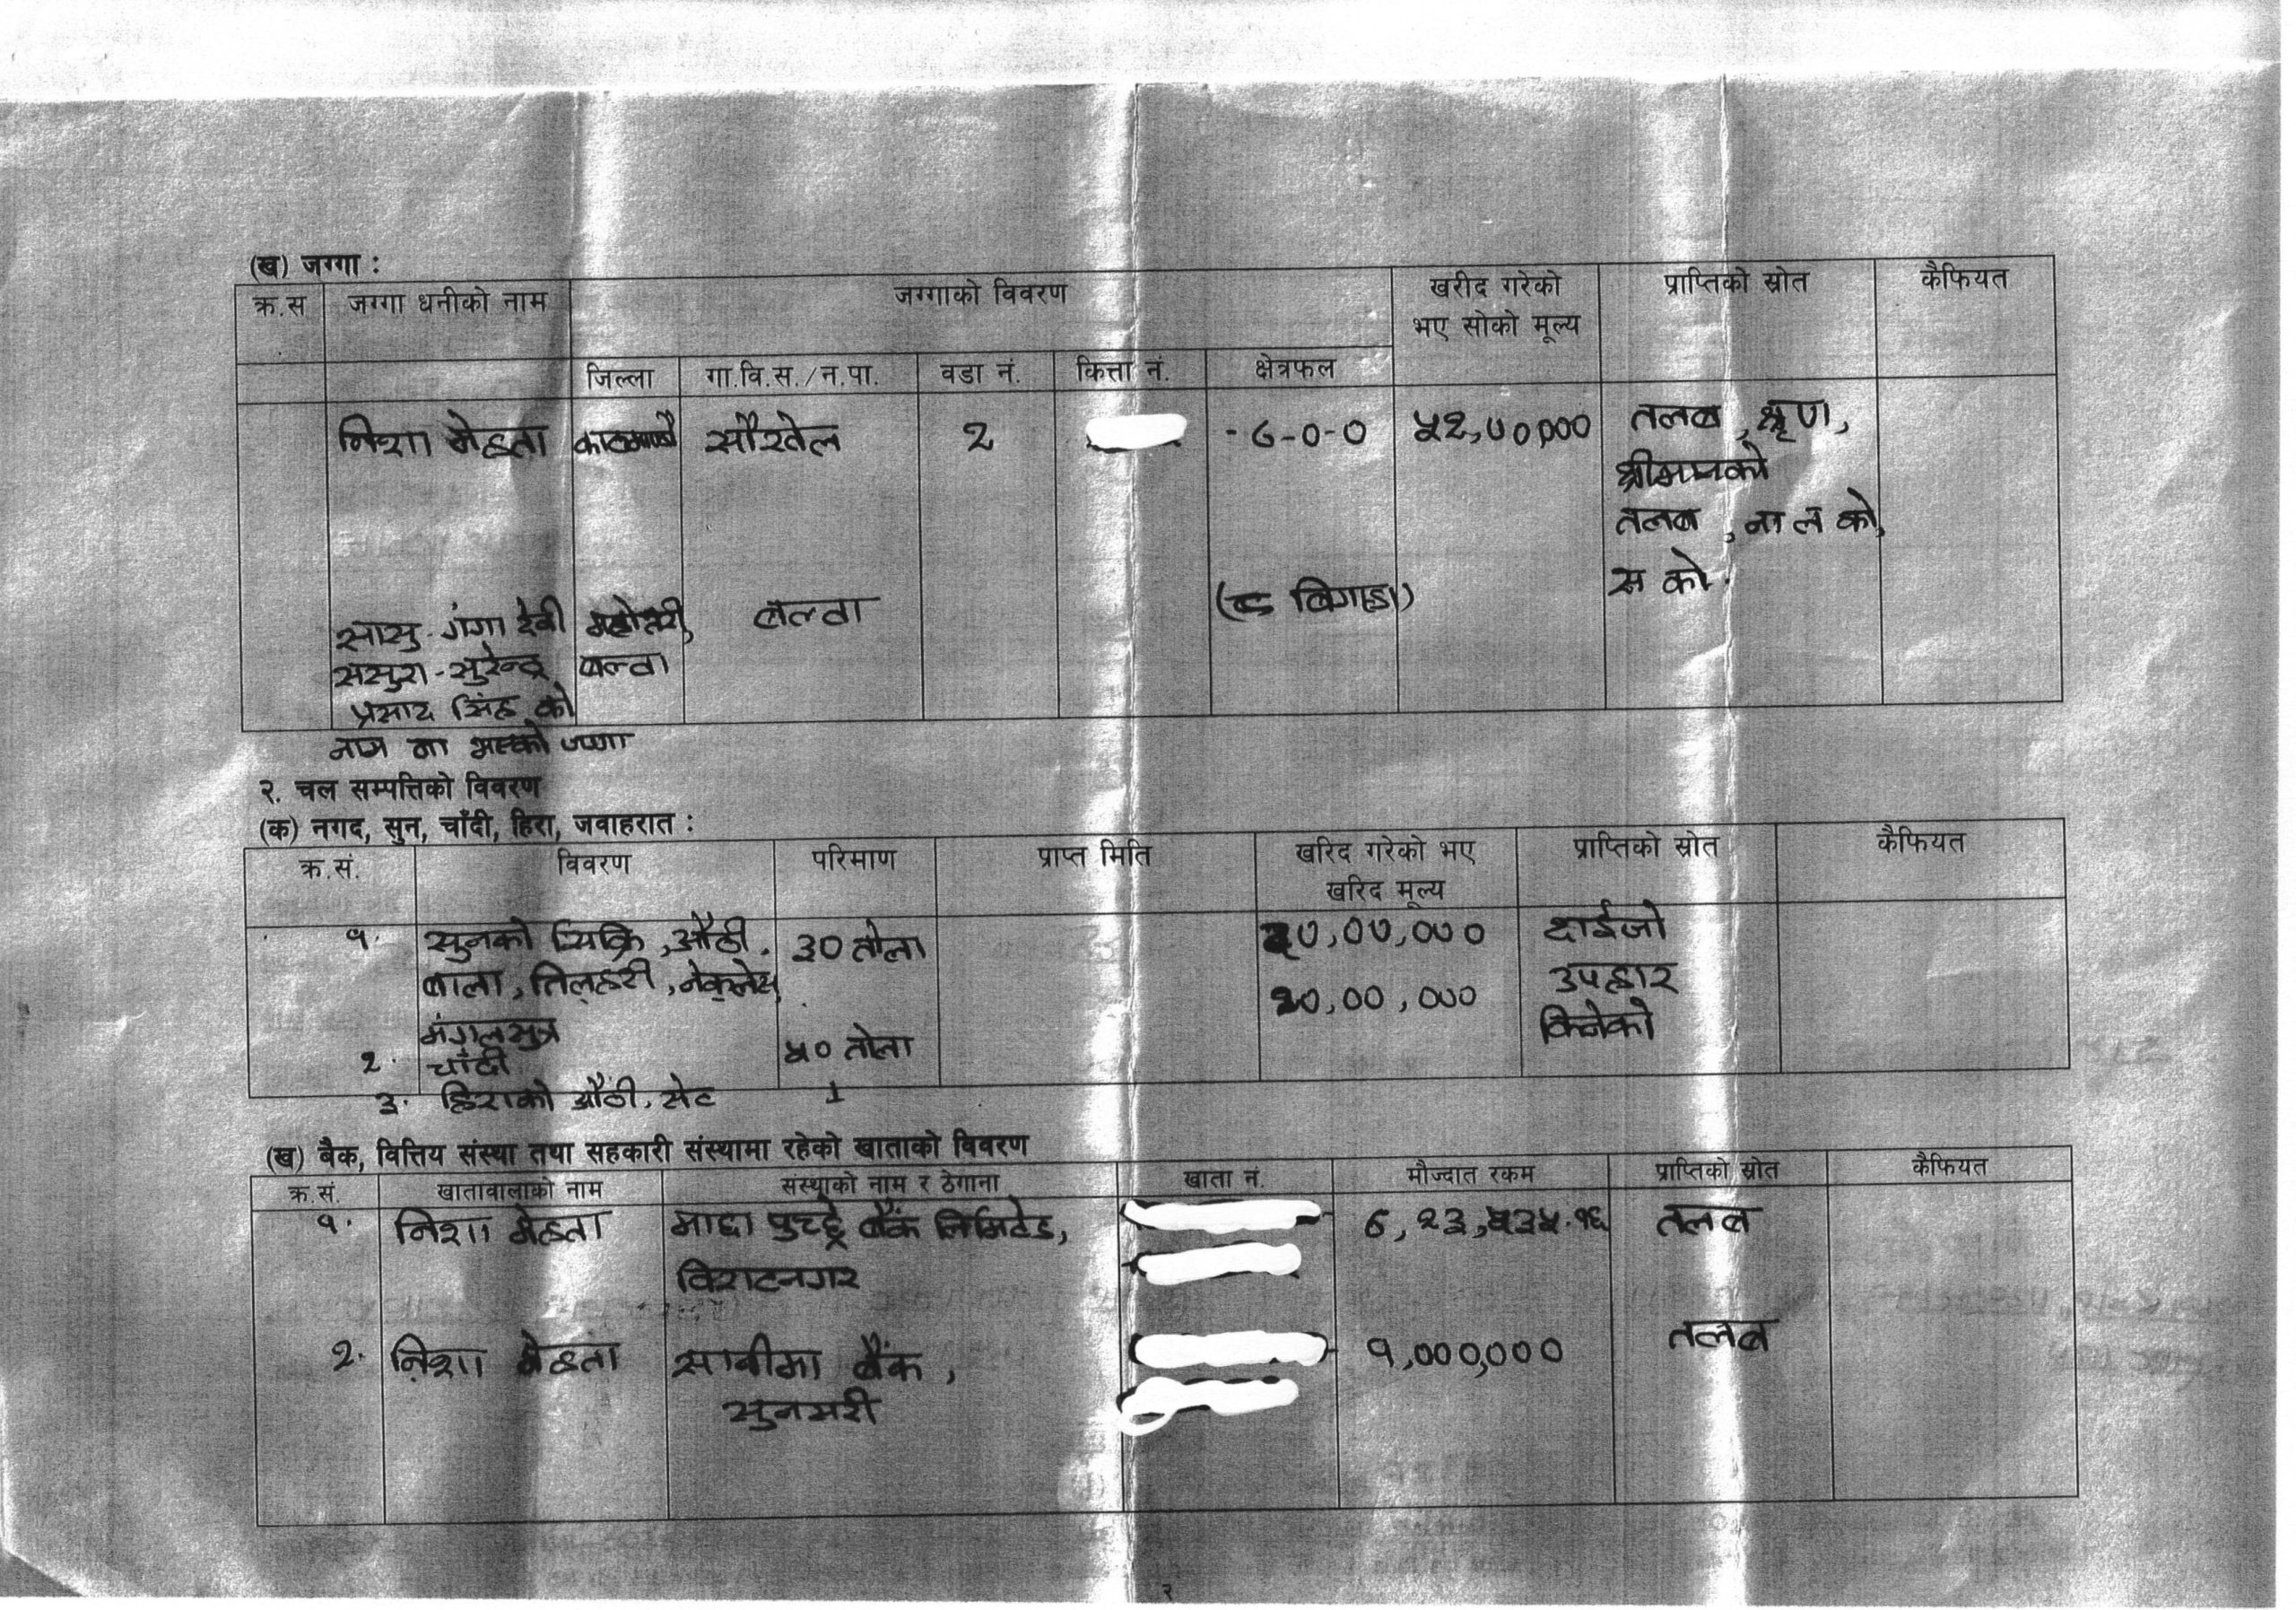 (ख) जग्गा :
क्र.स जग्गा धनीको नाम जग्गाको विवरण खरीद गरेको भए सोको मूल्य प्राप्तिको स्रोत कैफियत
जिल्ला गा.वि.स./न.पा. वडा नं. कित्ता नं. क्षेत्रफल
निशा मेहता काठमाण्डौ सौरतेल २ -6-0-0 ५२,७०,००० तलब, ऋण,
श्रीमानको
तलब
स को.
सासु-गंगा देवी महोत्तरी, बल्वा (८ बिगाहा)
ससुरा-सुरेन्द्र बल्वा
प्रसाद सिंह को
नाम मा भएको जग्गा
२. चल सम्पत्तिको विवरण
(क) नगद, सुन, चाँदी, हिरा, जवाहरात :
क्र.सं. विवरण परिमाण प्राप्त मिति खरिद गरेको भए खरिद मूल्य प्राप्तिको स्रोत कैफियत
१. सुनको सिक्रि, औठी, ३० तोला दाईजो
बाला, तिलहरी, नेकलेस, २०,००,००० उपहार
मंगलसुत्र किनेको
२. चाँदी ५० तोला
३. हिराको औंठी, सेट 1
(ख) बैक, वित्तिय संस्था तथा सहकारी संस्थामा रहेको खाताको विवरण
क्र.सं. खातावालाको नाम संस्थाको नाम र ठेगाना खाता नं. मौज्दात रकम प्राप्तिको स्रोत कैफियत
१. निशा मेहता माछा पुच्छ्रे बैंक लिमिटेड, 6,२३,५३५.१६ तलब
विराटनगर
२. निशा मेहता सानीमा बैंक, १,०००,००० तलब
सुनसरी
२